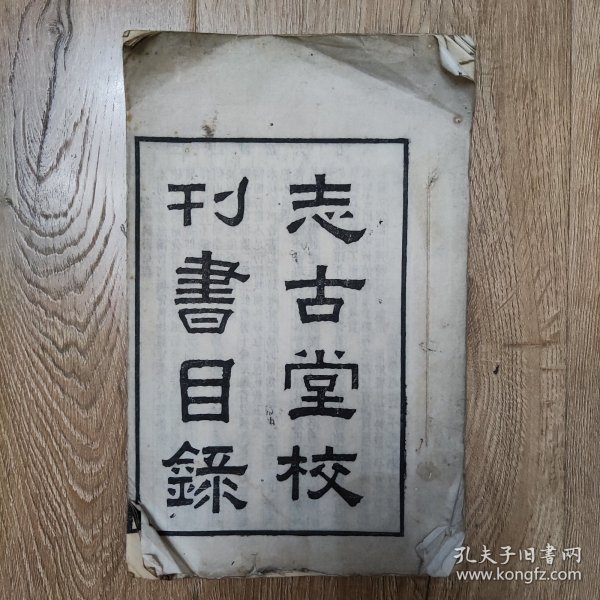 志古堂校
刊書目錄
孔夫子旧書网
www.kongfz.com